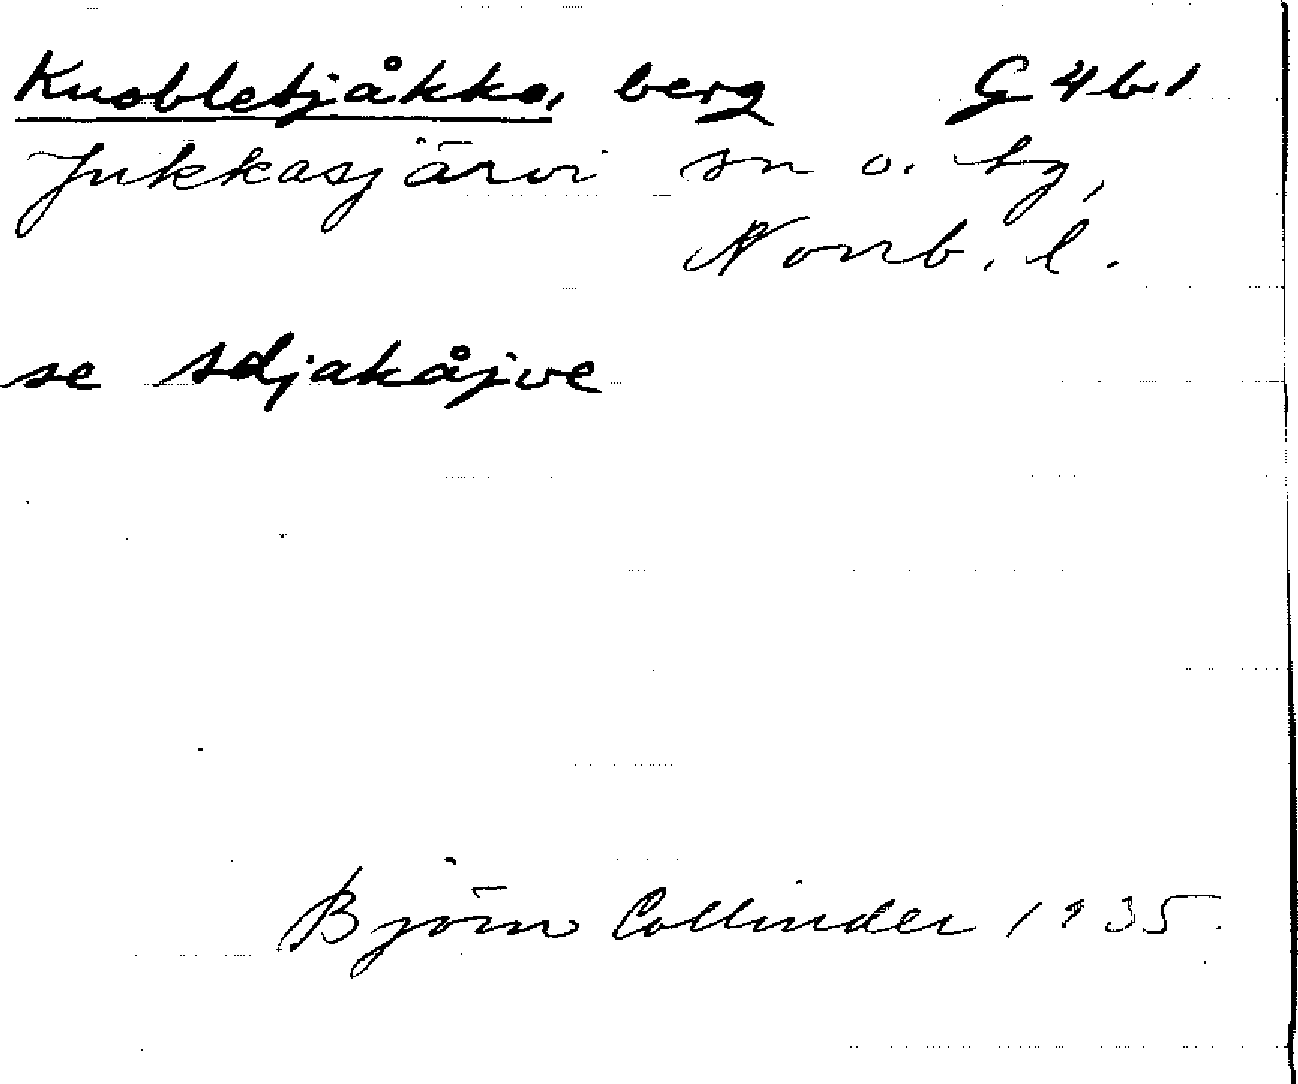 Kuobletjåkko, berg G 4 b 1
Jukkasjärvi sn o. tg,
Norrb. l.
se Adjakåjve
Björn Collinder 1935.